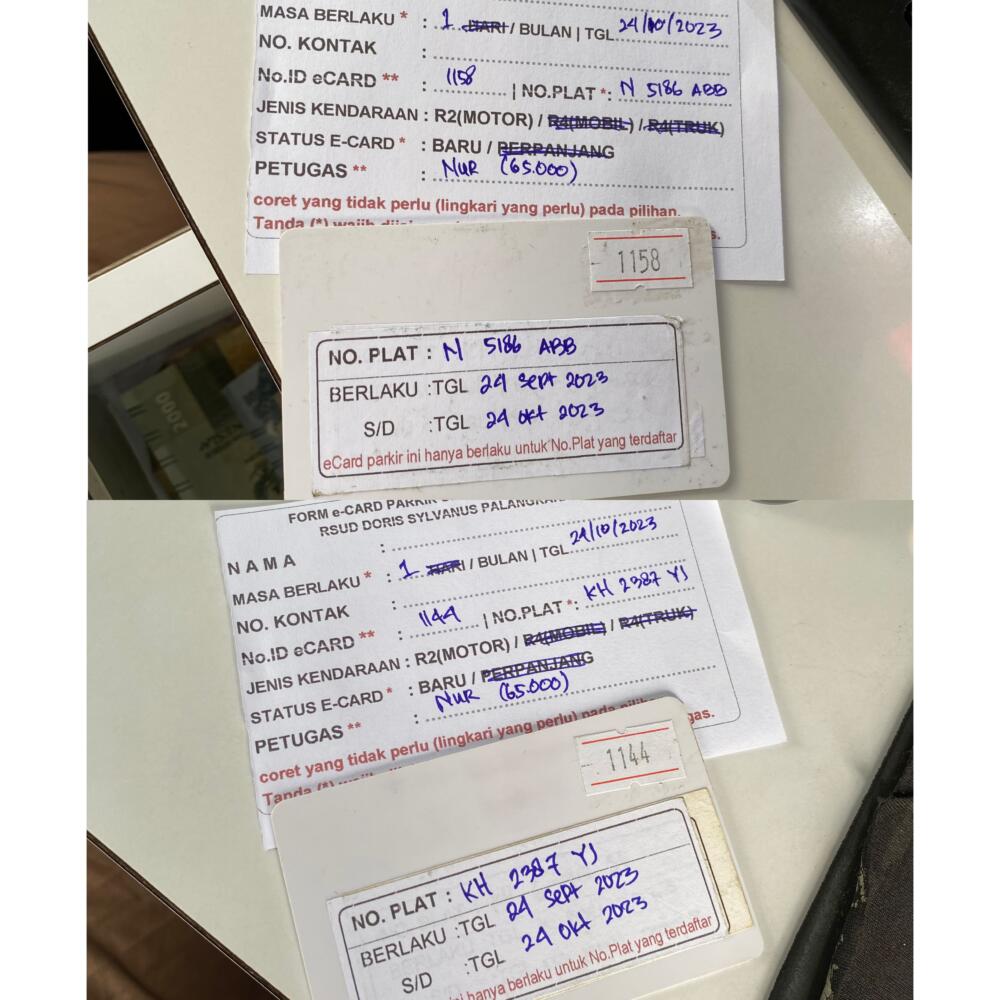 MASA BERLAKU * : 1 HARI / BULAN | TGL 24/10/2023
NO. KONTAK :
No.ID eCARD ** : 1158 | NO.PLAT *: N 5186 ABB
JENIS KENDARAAN : R2(MOTOR) / R4(MOBIL) / R4(TRUK)
STATUS E-CARD * : BARU / PERPANJANG
PETUGAS ** : NUR (65.000)
coret yang tidak perlu (lingkari yang perlu) pada pilihan.
Tanda (*) wajib
1158
NO. PLAT : N 5186 ABB
BERLAKU :TGL 24 Sept 2023
S/D :TGL 24 Okt 2023
eCard parkir ini hanya berlaku untuk No.Plat yang terdaftar
2000
FORM e-CARD PARKIR
RSUD DORIS SYLVANUS
NAMA :
MASA BERLAKU * : 1 HARI / BULAN | TGL 24/10/2023
NO. KONTAK :
No.ID eCARD ** : 1144 | NO.PLAT *: KH 2387 YJ
JENIS KENDARAAN : R2(MOTOR) / R4(MOBIL) / R4(TRUK)
STATUS E-CARD * : BARU / PERPANJANG
PETUGAS ** : NUR (65.000)
coret yang tidak perlu (lingkari yang perlu) pada
Tanda (*)
1144
NO. PLAT : KH 2387 YJ
BERLAKU :TGL 24 Sept 2023
S/D :TGL 24 Okt 2023
ini hanya berlaku untuk No.Plat yang terdaftar